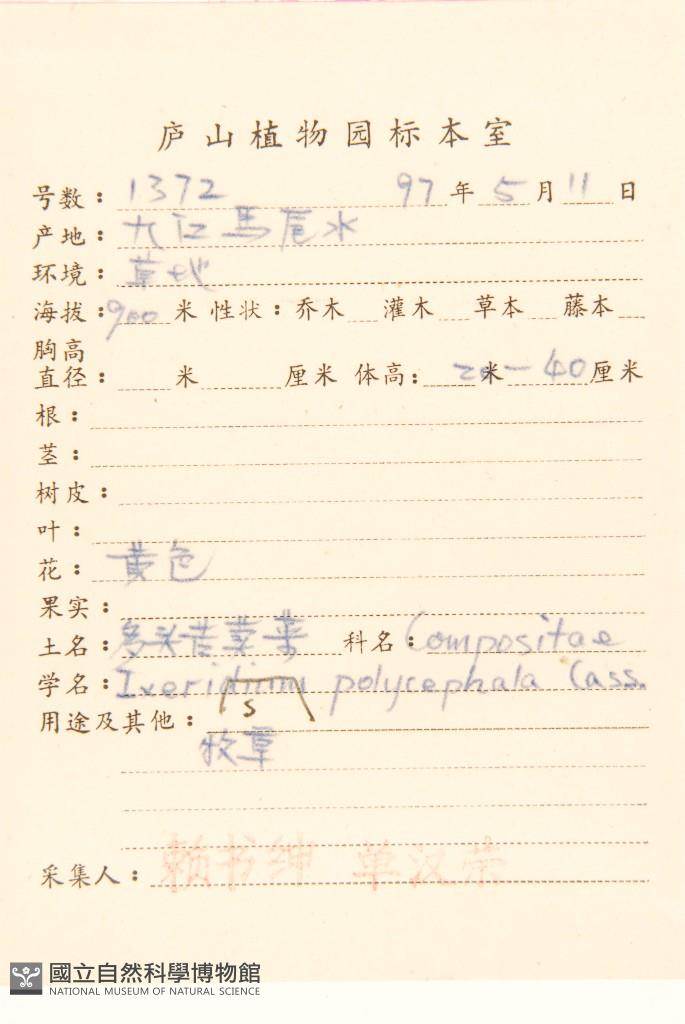 庐山植物园标本室
号数：1372 97年5月11日
产地：九江馬尾水
环境：草地
海拔：900米 性状：乔木 灌木 草本 藤本
胸高
直径： 米 厘米 体高： 20米—40厘米
根：
茎：
树皮：
叶：
花：黄色
果实：
土名：多头苦荬菜 科名：Compositae
学名：Ixeridium polycephala Cass.
s
用途及其他：
牧草
采集人：赖书绅 单汉荣
國立自然科學博物館
NATIONAL MUSEUM OF NATURAL SCIENCE